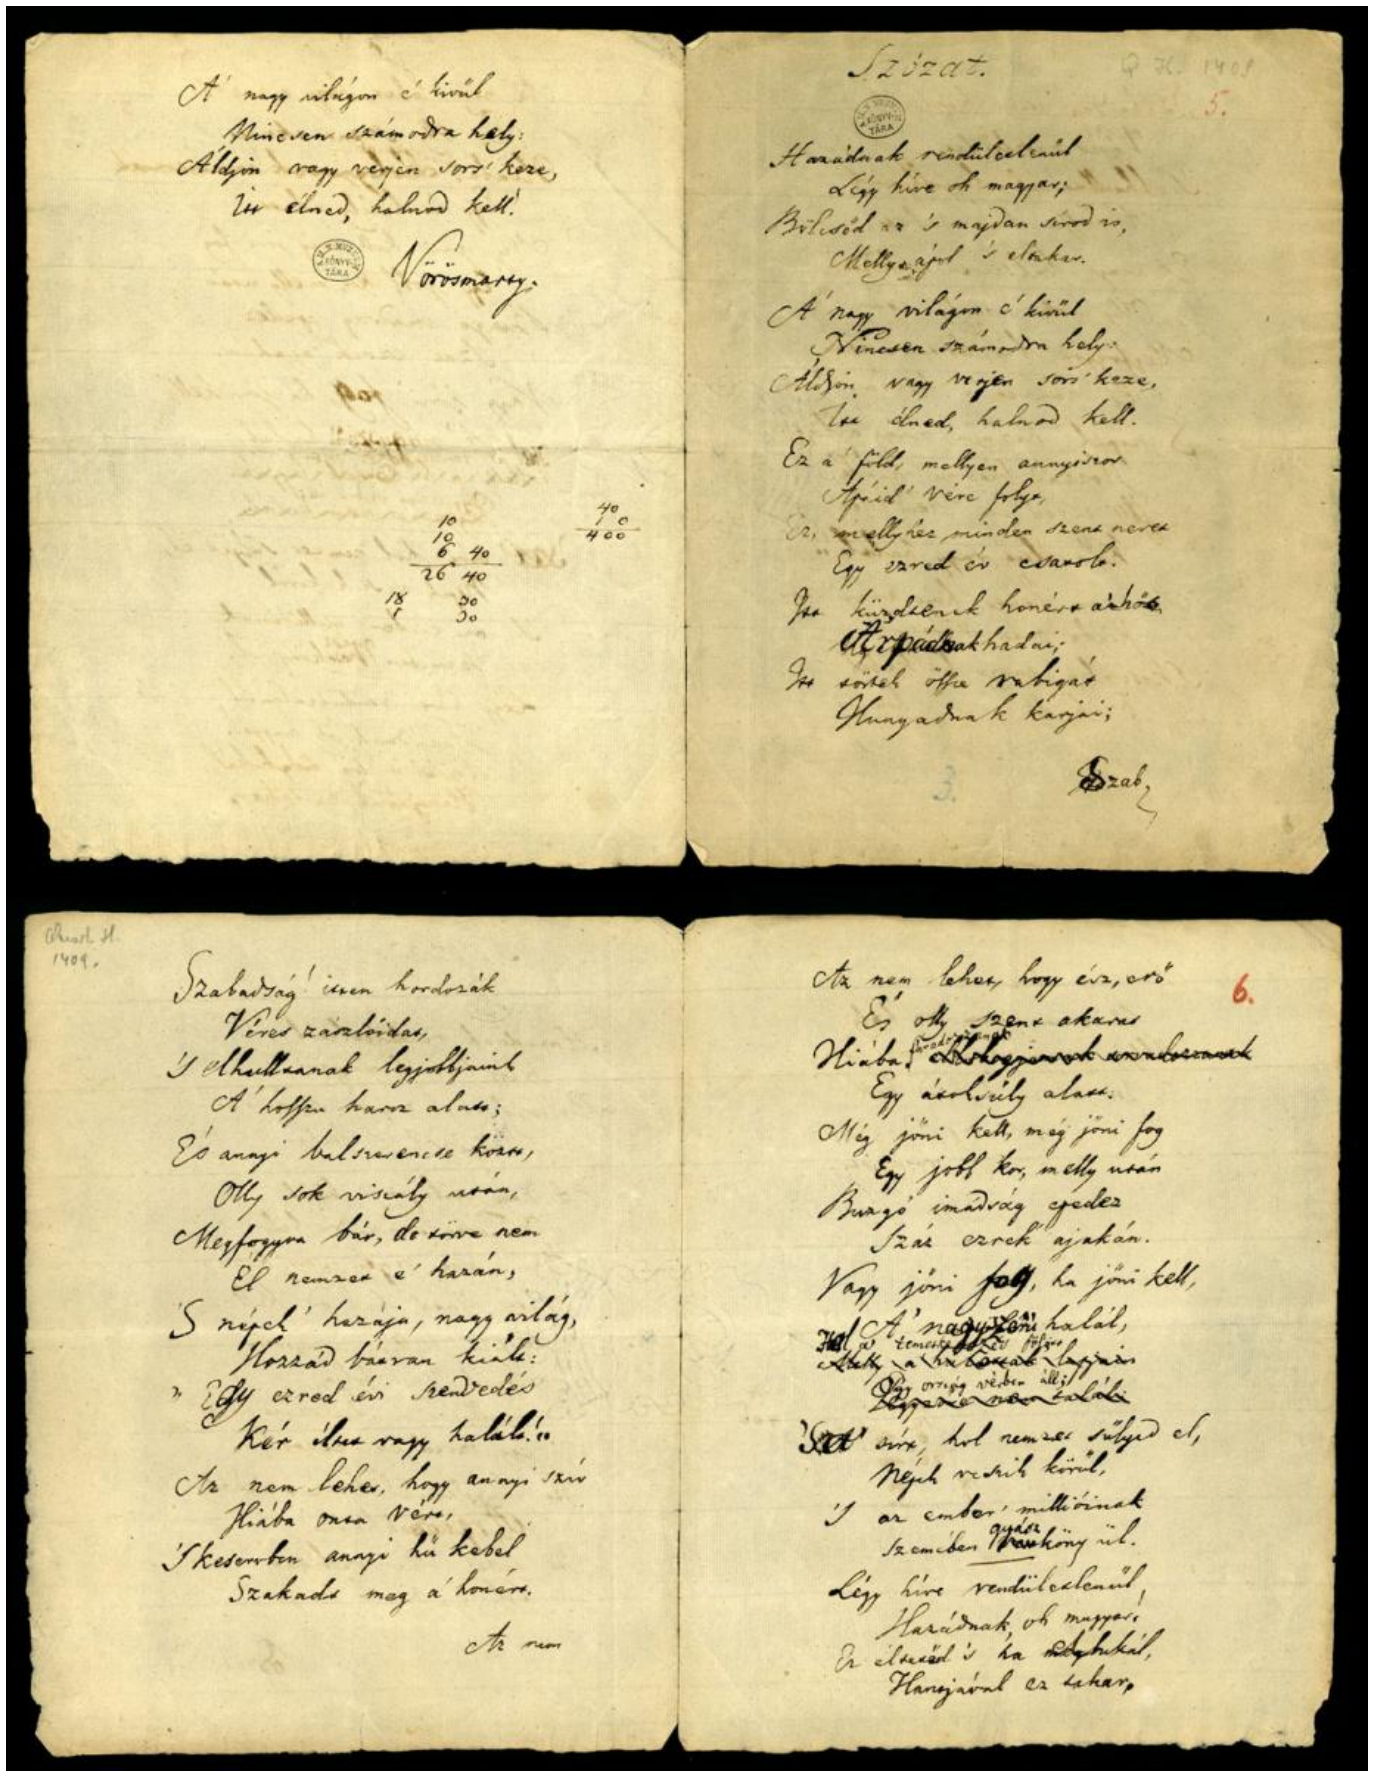 A' nagy világon é' kivűl
Nincsen számodra hely:
Áldjon vagy verjen sors' keze,
Itt élned, halnod kell.
Vörösmarty.
KÖNYV-
TÁRA
10
10
6 40
26 40
18 30
1 30
40
10
400
Szózat.
Q. H. 1409
5.
KÖNYV-
TÁRA
Hazádnak rendűletlenűl
Légy híve oh magyar;
Bölcsőd az 's majdan sirod is,
Melly ápol 's eltakar.
A' nagy világon é' kivűl
Nincsen számodra hely:
Áldjon vagy verjen sors' keze,
Itt élned, halnod kell.
Ez a' föld, mellyen annyiszor
Apáid' vére folyt,
Ez, mellyhez minden szent nevet
Egy ezred év csatolt.
Itt küzdtenek honért a' hős
Árpádnak hadai;
Itt törtek össze rabigát
Hunyadnak karjai;
Szab
3.
Quart. H.
1409.
Szabadság! itten hordozák
Véres zászlóidat,
'S elhulltanak legjobbjaink
A' hosszu harcz alatt;
És annyi balszerencse közt,
Olly sok viszály után,
Megfogyva bár, de törve nem
Él nemzet e' hazán,
'S népek' hazája, nagy világ,
Hozzád bátran kiált:
„ Egy ezred évi szenvedés
Kér éltet vagy halált!"
Az nem lehet, hogy annyi szív
Hiába onta vért,
'S keservben annyi hű kebel
Szakadt meg a' honért.
Az nem
Az nem lehet, hogy ész, erő
6.
És olly szent akarat
sorvadozzanak
Hiába
Egy átoksúly alatt.
Még jőni kell, még jőni fog
Egy jobb kor, melly után
Buzgó imádság epedez
Száz ezrek' ajakán.
Vagy jőni fog, ha jőni kell,
A' nagyszerü halál,
Hol a' temetkezés fölött
Egy ország vérben áll;
'S a' sírt, hol nemzet sűlyed el,
Népek veszik körűl,
'S az ember' millióinak
gyász
Szemében köny űl.
Légy híve rendűletlenűl,
Hazádnak, oh magyar:
Ez éltetőd 's ha elbukál,
Hantjával ez takar,